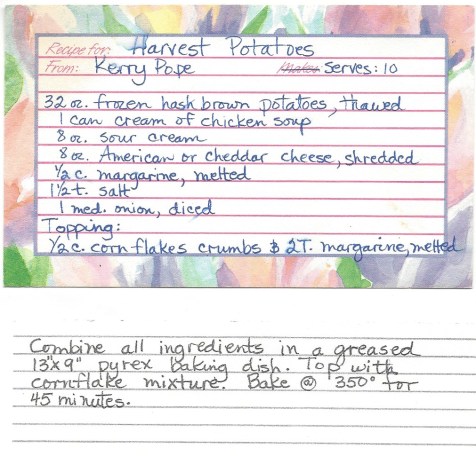 Recipe for: Harvest Potatoes
From: Kerry Pope Makes Serves: 10
32 oz. frozen hash brown potatoes, thawed
1 can cream of chicken soup
8 oz. sour cream
8 oz. American or cheddar cheese, shredded
1/2 c. margarine, melted
1 1/2 t. salt
1 med. onion, diced
Topping:
1/2 c. corn flakes crumbs & 2T. margarine, melted
Combine all ingredients in a greased
13"x9" pyrex baking dish. Top with
cornflake mixture. Bake @ 350° for
45 minutes.